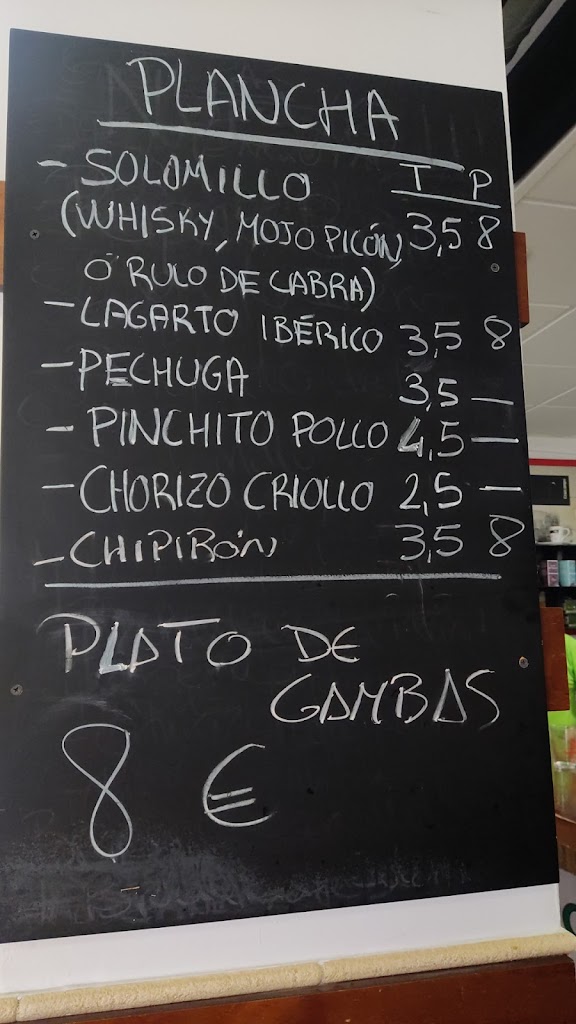 PLANCHA
T P
- SOLOMILLO
(WHISKY, MOJO PICÓN, 3,5 8
Ó RULO DE CABRA)
- LAGARTO IBÉRICO 3,5 8
- PECHUGA 3,5 —
- PINCHITO POLLO 4,5 —
- CHORIZO CRIOLLO 2,5 —
- CHIPIRÓN 3,5 8
PLATO DE
GAMBAS
8 €